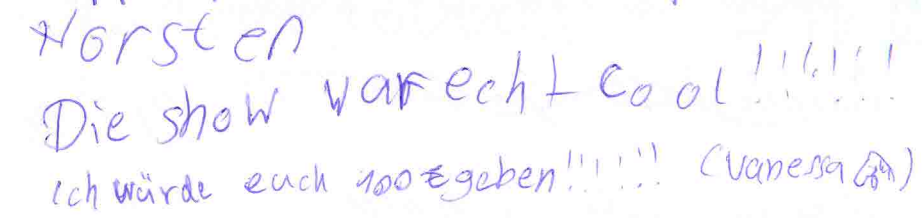 Horsten
Die show war echt cool!!!!!!!
ich würde euch 100€ geben!!!!!! (Vanessa)